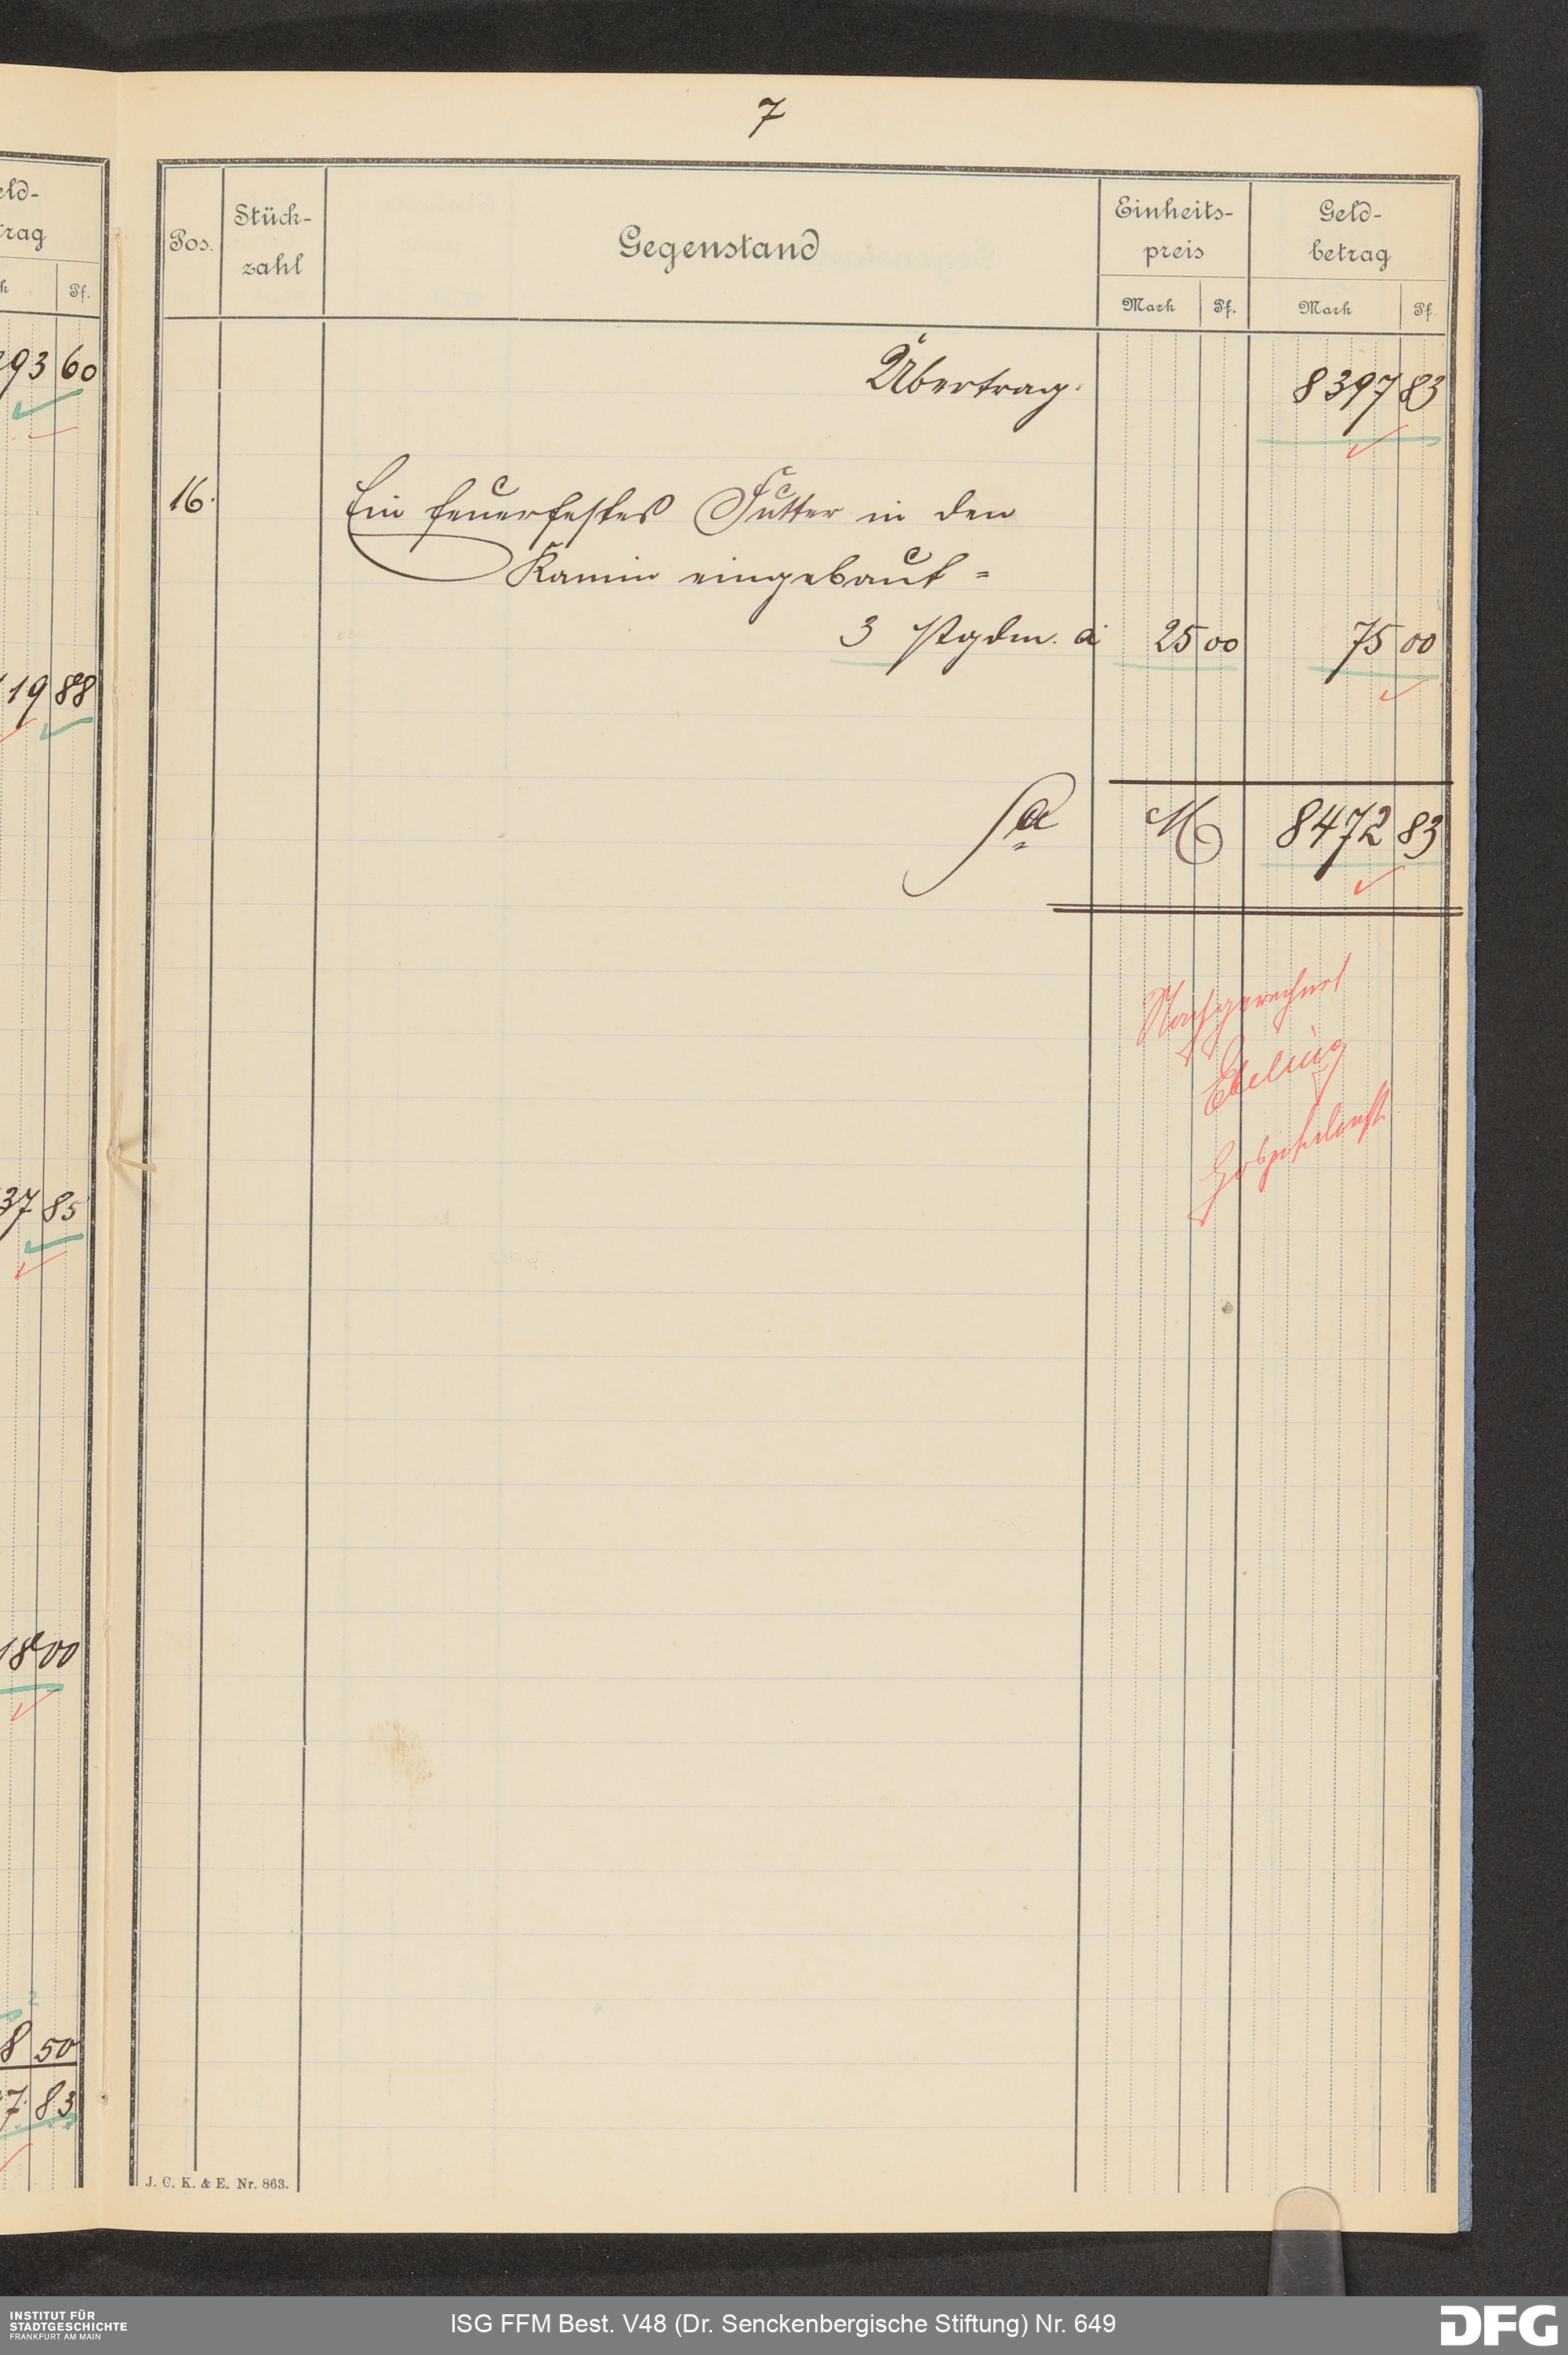 eld-
trag
k Pf.
93 60
119 88
37 85
18 00
2
8 50
7 83
7
Pos.
Stück-
zahl
Gegenstand
Einheits-
preis
Geld-
betrag
Mark Pf. Mark Pf.
Übertrag. 8397 83
16. Ein feuerfestes Futter in den
Kamin eingebaut =
3 stgdm. à 25 00 75 00
Sa M 8472 83
Nachgerechnet
Ebeling
J. C. K. & E. Nr. 863.
INSTITUT FÜR
STADTGESCHICHTE
FRANKFURT AM MAIN
ISG FFM Best. V48 (Dr. Senckenbergische Stiftung) Nr. 649
DFG